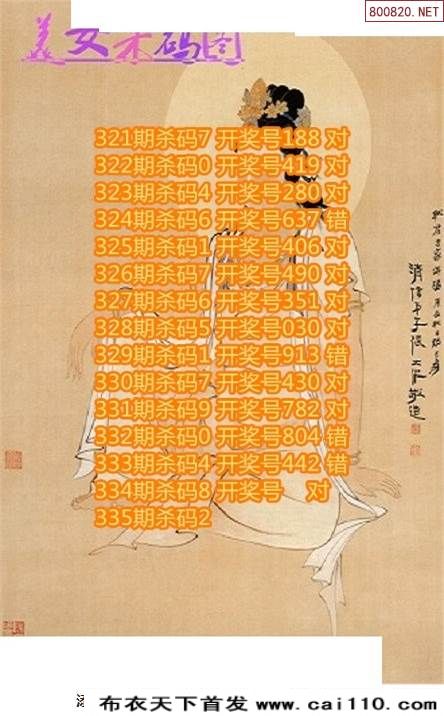 800820.NET
美女杀码图
321期杀码7 开奖号188 对
322期杀码0 开奖号419 对
323期杀码4 开奖号280 对
324期杀码6 开奖号637 错
325期杀码1 开奖号406 对
326期杀码7 开奖号490 对
327期杀码6 开奖号351 对
328期杀码5 开奖号030 对
329期杀码1 开奖号913 错
330期杀码7 开奖号430 对
331期杀码9 开奖号782 对
332期杀码0 开奖号804 错
333期杀码4 开奖号442 错
334期杀码8 开奖号 对
335期杀码2
布衣天下首发 www.cai110.com